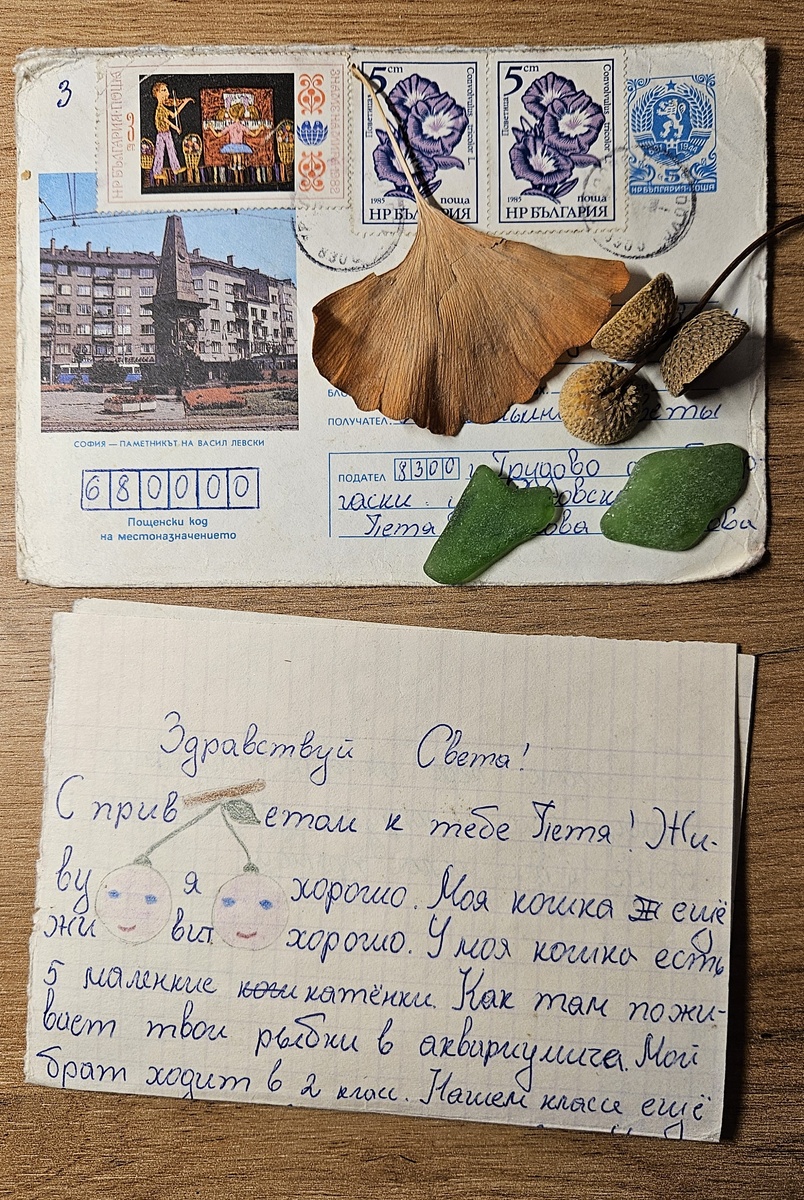 3
НР БЪЛГАРИЯ·ПОЩА
5ст
Поветица
Convolvulus tricolor L.
1985
поща
НР БЪЛГАРИЯ
5ст
Поветица
Convolvulus tricolor L.
1985
поща
НР БЪЛГАРИЯ
681 1944
5
НР БЪЛГАРИЯ·ПОЩА
8300
СОФИЯ — ПАМЕТНИКЪТ НА ВАСИЛ ЛЕВСКИ
680000
Пощенски код
на местоназначението
ПОЛУЧАТЕЛ:
ПОДАТЕЛ 8300 Трудово
Петя
Здравствуй Света!
С приветом к тебе Петя! Жи-
ву я хорошо. Моя кошка ещё
живит хорошо. У моя кошка есть
5 маленкие катёнки. Как там пожи-
вает твои рыбки в аквариумича. Мой
брат ходит в 2 клас. Нашем класе ещё